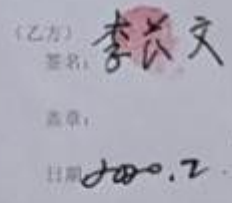 （乙方）
签名：李长文
盖章：
日期 2020.2